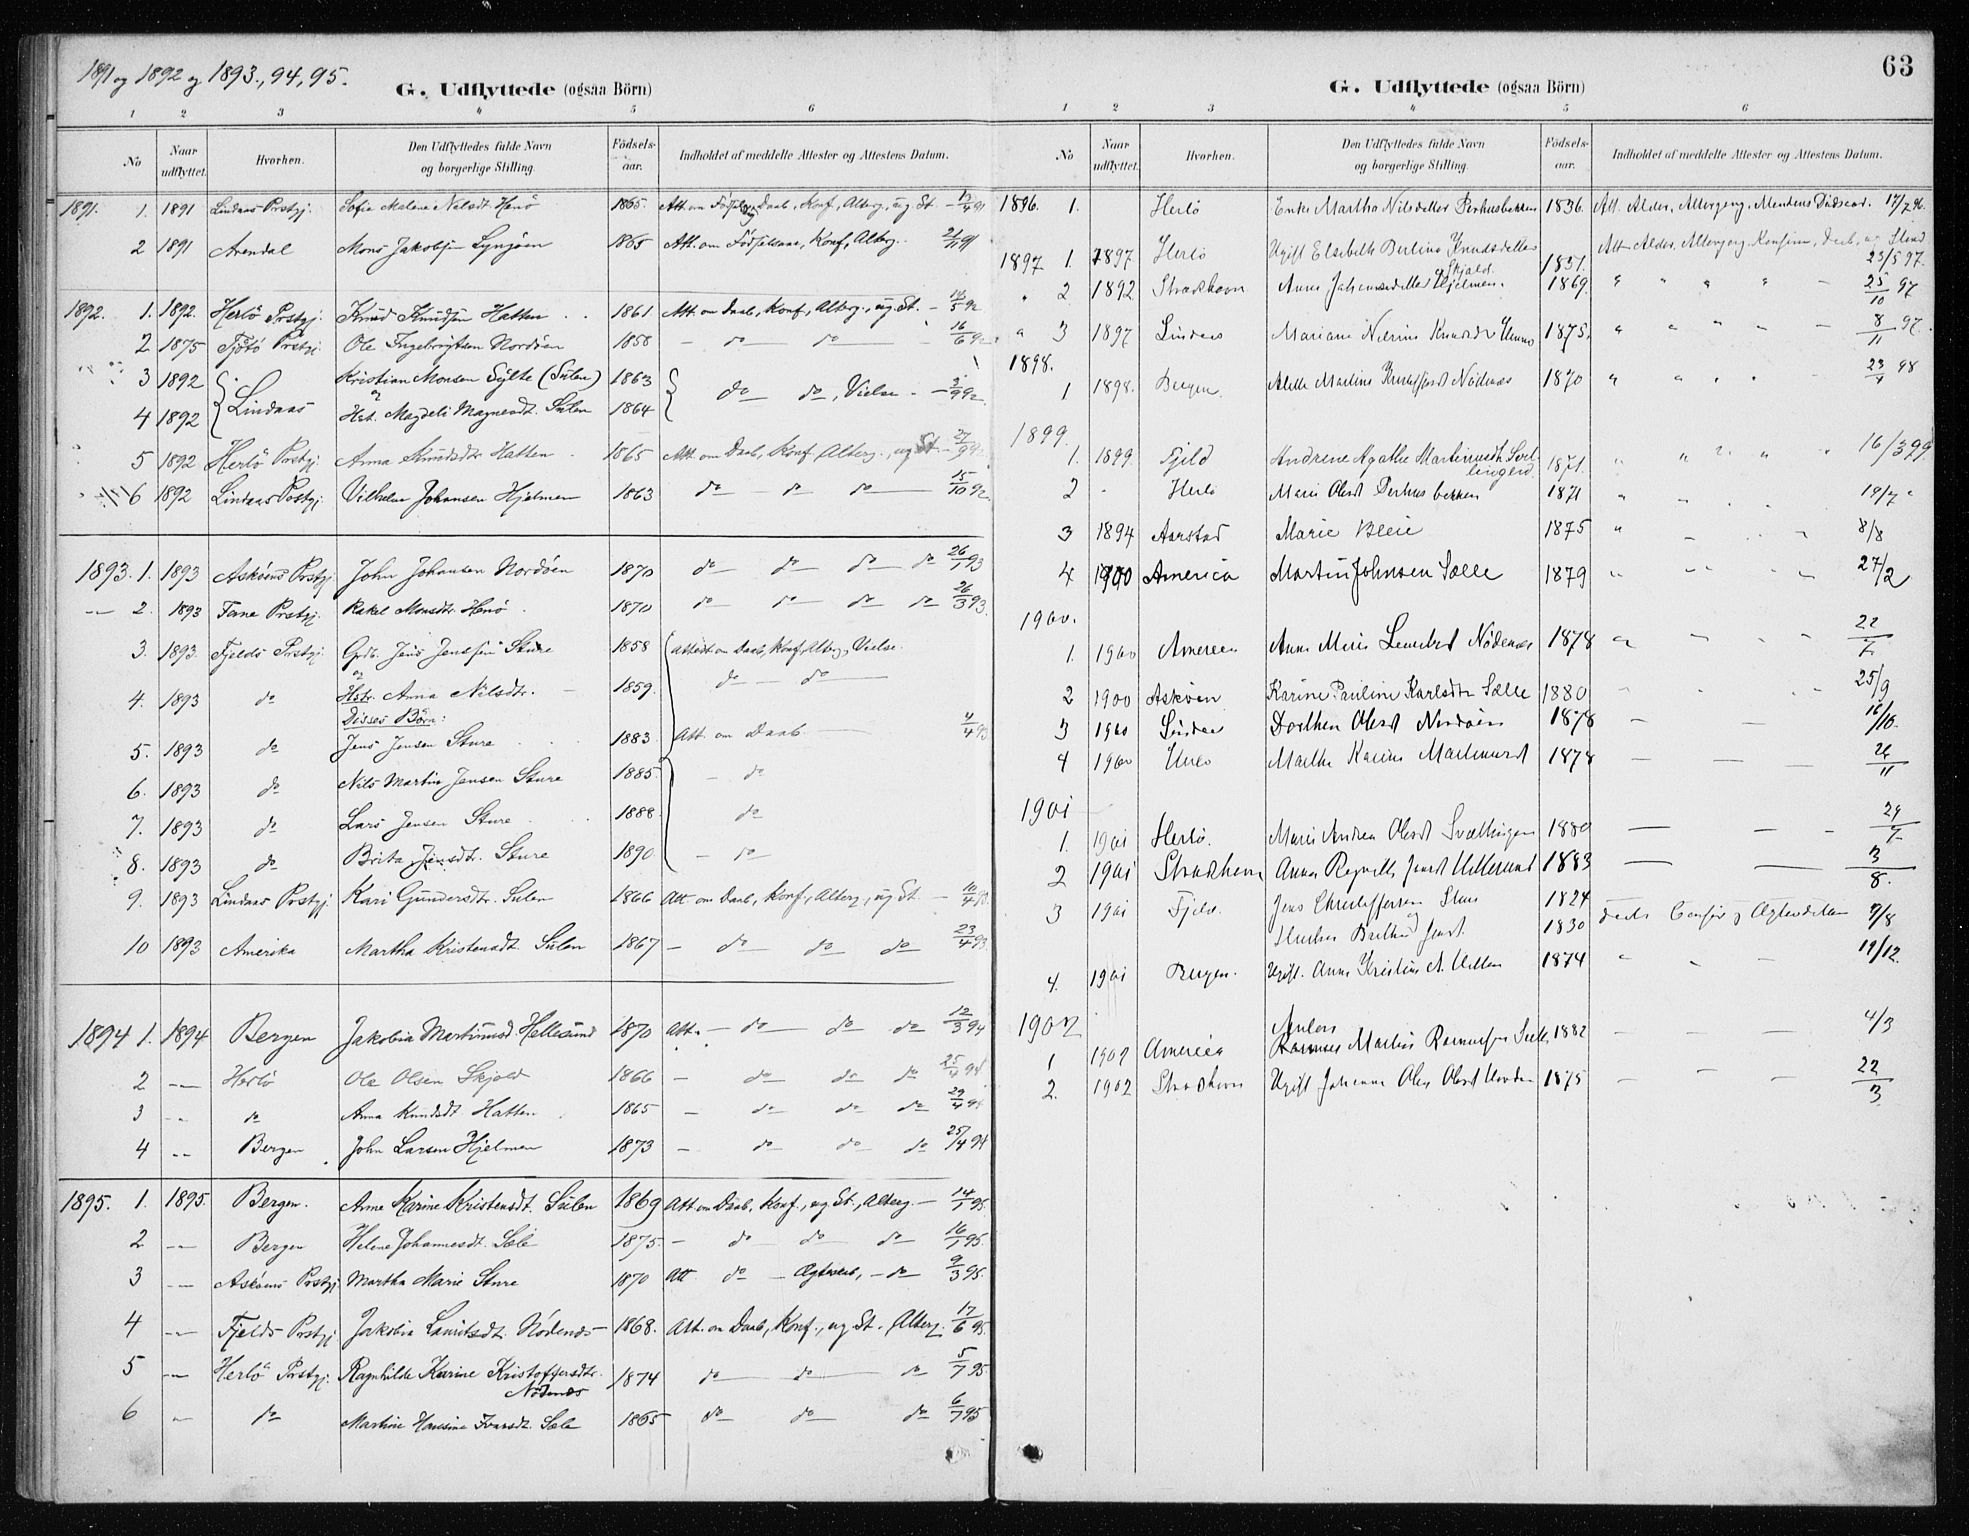 1891 og 1892 og 1893., 94, 95.
G. Udflyttede (ogsaa Börn)
1 2 3 4 5 6
No Naar udflyttet. Hvorhen. Den Udflyttedes fulde Navn og borgerlige Stilling. Födsels-aar. Indholdet af meddelte Attester og Attestens Datum.
1891. 1. 1891 Lindaas Prstgj. Sofie Malene Nilsdt. Henö 1865. Att. om Födsel, Daab, Konf., Alterg., ug. St. – 13/4 91
2 1891 Arendal Mons Jakobsen Lyngöen 1865 Att. om Födselsaar, Konf., Alterg. 91
1892. 1. 1892. Herlö Prstgj. Knud Knudsen Hatten 1861 Att. om Daab, Konf., Alterg., ug. St. – /5 92.
2 1875 Tjötö Prstgj. Ole Ingebrigtsen Nordöen 1858 – do do – 16/6 92.
3 1892 Lindaas Kristian Monsen Sylte (Sulen) 1863 do do, Vielse. – 3/9 92.
og
4 1892 Hst. Magdeli Magnesdt. Sulen 1864
5 1892 Herlö Prstgj. Anna Knudsdtr. Hatten 1865 Att. om Daab, Konf., Alterg., ug St. – 27/9 92
6 1892 Lindaas Prstgj. Vilhelm Johansen Hjelmen 1863 do – do – do 15/10 92
1893. 1. 1893 Asköens Prstgj. John Johansen Nordöen 1870 do do do do 26/1 93
– 2. 1893 Fane Prstgj. Rakel Monsdtr. Henö 1870 do do do do 26/3 93.
3. 1893. Fjelds Prstgj. Grdb. Jens Jensen Sture 1858 Attest om Daab, Konf., Alterg., Vielse.
og
4. 1893 do Hstr. Anna Nilsdtr. – 1859. do – do
Disses Börn:
5. 1893 do Jens Jensen Sture 1883. Att. om Daab 4/4 93
6. 1893 do Nils Martin Jensen Sture 1885. – do
7. 1893 do Lars Jensen Sture 1888. do
8. 1893 do Brita Jensdtr. Sture 1890 – do
9. 1893 Lindaas Prstgj. Kari Gundersdtr. Sulen 1866 Att om Daab, Konf., Alterg., ug St. – 10/4 93.
10 1893 Amerika Martha Kristensdt. Sulen 1867 – do do do 23/4 93
1894 1. 1894 Bergen Jakobia Martinusd. Hellesund 1870 Att. – do do do 12/3 94
2 – Herlö Ole Olsen Skjold 1866 – do do do 25/4 94
3 – do Anna Knudsdt Hatten 1865 – do do do 29/4 94
4 – Bergen John Larsen Hjelmen 1873 – do do do 25/4 94
1895. 1. 1895. Bergen. Anne Karine Kristensdt. Sulen 1869 Att. om Daab, Konf., ug St., Alterg. – 14/1 95.
2 – Bergen Helene Johannesdt. Sæle 1875. – do do do 16/1 95.
3 – Asköens Prstgj. Martha Marie Sture 1870 Att. do – Ægteskab, – do 9/3 95.
4 – Fjelds Prstgj. Jakobia Lauritsdt. Nödenes – 1868. Att. om Daab, Konf., ug St. Alterg. 17/6 95.
5 – Herlö Prstgj. Ragnhilde Karine Kristoffersdtr. 1874 do do do 5/7 95
Nödenes
6 – do Martine Hansine Ivarsdt. Sæle 1865 do do do 6/7 95
63
G. Udflyttede (ogsaa Börn)
1 2 3 4 5 6
No Naar udflyttet. Hvorhen. Den Udflyttedes fulde Navn og borgerlige Stilling. Födsels-aar. Indholdet af meddelte Attester og Attestens Datum.
1896. 1. Herlö Enke Martha Nilsdotter Perhusbakken 1836. Att. Alder, Altergang, Mandens Dödsaar. 17/7 96.
1897 1. 1897. Herlö Ugift Elsebeth Berlina Knudsdatter 1851. Att Alder, Altergang, Konfirm, Daab, ug Stand 23/5 97.
Skjold.
" 2 1892 Stradshavn Anna Johannesdatter Hjelmen. 1869. " " " " – 25/10 97
" 3 1897 Lindaas Mariane Knudsdr 1875. " " " " – 8/11 97.
1898.
1 1898. Bergen. Alette Martine Kristoffersd Nödenæs 1870 " " " " – 23/4 98
1899.
1. 1899. Fjeld Andrene Agathe Martinusdt. 1871. " " " " 16/3 99
2 " Herlö Marie Olsdt Perhusbakken 1871 " " 19/7 "
3 1894 Aarstad Marie Bleie 1875 " 8/8
4 1900 America Martin Johnsen Sælle 1879 " " " " 27/2
1900.
1. 1900 America Anne Marie Nödenæs 1878 " 22/7
2 1900 Asköen Karine Pauline Karlsdtr Sælle 1880 " 25/9
3 1900 Lindaas Dorthea Olsdt Nordöen 1878 – – 16/10.
4 1900 Herlö Marthe Karine Martinusdt 1878 – – – 26/11
1901
1. 1901 Herlö. Marie Andrea Olsdt 1880 – – – 29/7
2 1901 Stradshavn Anna Jonsdt Hellesund 1883 – – 3/8.
3 1901 Fjeld. Jens Christoffersen Sture 1824 Daab Confir og Ægteskab 7/8
og
Hustru Brithe Jensdt. 1830
4. 1901 Bergen. Ugift. Anne Kristine 1874 " " – 19/12.
1902
Anders
1 1902 America Rasmus Martin Rasmussen Sæle, 1882 – – – 4/3
2. 1902 Stradshavn Ugift Johanne Olsdt 1875 – – – 22/3